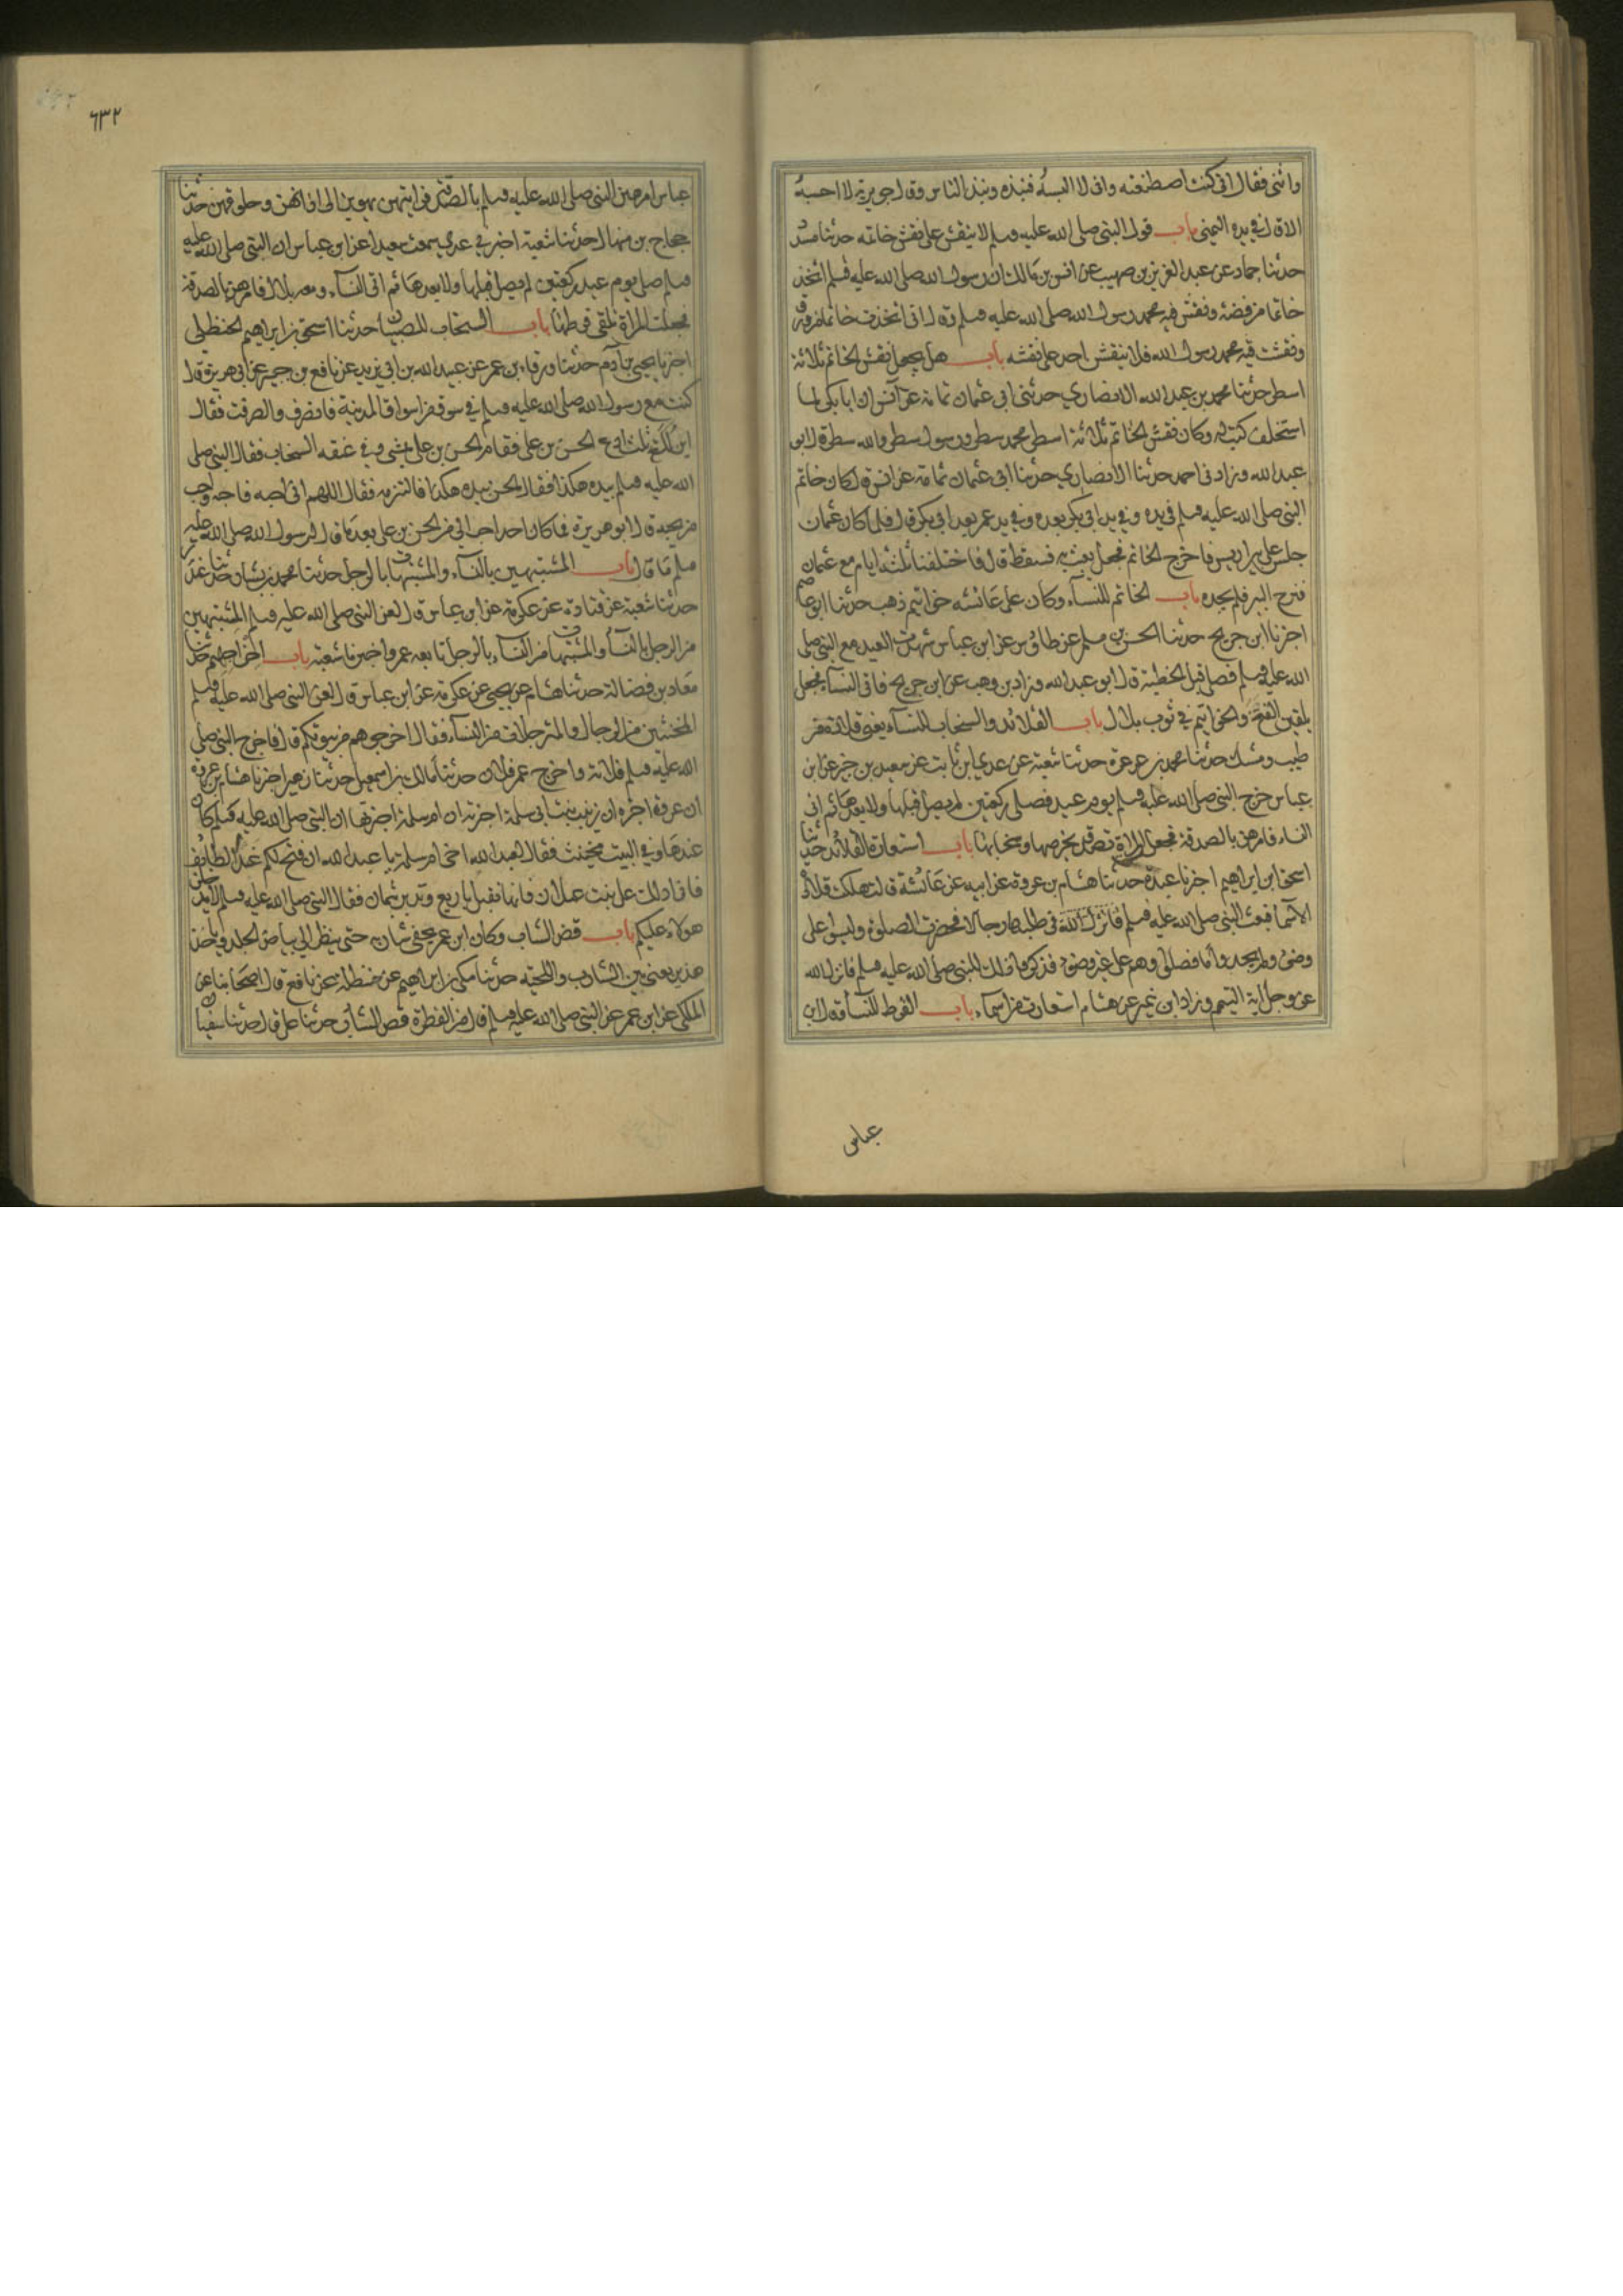 واثنى فقال انى كنت اصطنعته وانى لا البسه فنبذه ونبذ الناس وقال جويرية لا احسبه
الا قال في يده اليمنى باب قول النبى صلى الله عليه وسلم لا ينقش على نقش خاتمه حدثنا مسدد
حدثنا حماد عن عبد العزيز بن صهيب عن انس بن مالك ان رسول الله صلى الله عليه وسلم اتخذ
خاتما من فضة ونقش فيه محمد رسول الله صلى الله عليه وسلم وقال انى اتخذت خاتما من ورق
ونقشت فيه محمد رسول الله فلا ينقش احد على نقشه باب هل يجعل نقش الخاتم ثلاثة
اسطر حدثنا محمد بن عبد الله الانصاري حدثنى ابى عثمان ثمامة عن انس ان ابا بكر لما
استخلف كتب له وكان نقش الخاتم ثلاثة اسطر محمد سطر ورسول سطر والله سطر قال ابو
عبد الله وزادنى احمد حدثنا الانصاري حدثنا ابى عثمان ثمامة عن انس قال كان خاتم
النبى صلى الله عليه وسلم فى يده وفي يد ابى بكر بعده وفي يد عمر بعد ابى بكر قال فلما كان عثمان
جلس على بير اريس فاخرج الخاتم فجعل يعبث به فسقط قال فاختلفنا ثلثة ايام مع عثمان
فنزح البير فلم يجده باب الخاتم للنسآء وكان على عائشه خواتيم ذهب حدثنا ابو عاصم
اخبرنا ابن جريح حدثنا الحسن بن مسلم عن طاوس عن ابن عباس شهدت العيد مع النبى صلى
الله عليه وسلم فصلى قبل الخطبة قال ابو عبد الله وزاد بن وهب عن ابن جريح فاتى النسآء فجعل
يلقين الفتخ والخواتيم في ثوب بلال باب القلائد والسخاب للنسآء يعنى قلادة من
طيب ومسك حدثنا محمد بن عرعرة حدثنا شعبة عن عدي ابن ثابت عن سعيد بن جبير عن ابن
عباس خرج النبى صلى الله عليه وسلم يوم عيد فصلى ركعتين لم يصل قبلها ولا بعدها ثم اتى
النساء فامرهن بالصدقة فجعل المراة تصدق بخرصها وسخابها باب استعارة القلائد حدثنا
اسحق ابن ابراهيم اخبرنا عبدة حدثنا هشام بن عروة عن ابيه عن عائشة قالت هلكت قلادة
لاسما فبعث النبى صلى الله عليه وسلم فى طلبها رجالا فحضرت الصلوة وليسوا على
وضوء ولم يجدوا ما فصلوا وهم على غير وضوء فذكروا ذلك للنبى صلى الله عليه وسلم فانزل الله
عز وجل اية التيمم وزاد ابن نمير عن هشام استعارت من اسماء باب القرط للنسآء قال ابن
عباس
٦٣٢
عباس امرهن النبى صلى الله عليه وسلم بالصدقة فرايتهن يهوين الى اذانهن وحلوقهن حدثنا
حجاج بن منهال حدثنا شعبة اخبرني عدي سمعت سعيدا عن ابن عباس ان النبى صلى الله عليه
وسلم صلى يوم عيد ركعتين لم يصل قبلها ولا بعدها ثم اتى النسآء ومعه بلال فامرهن بالصدقة
فجعلت المراة تلقى قرطها باب السخاب للصبيان حدثنا اسحق بن ابراهيم الحنظلى
اخبرنا يحيى بن آدم حدثنا ورقاء بن عمر عن عبيد الله بن ابى يزيد عن نافع بن جبير عن ابى هريرة قال
كنت مع رسول الله صلى الله عليه وسلم في سوق من اسواق المدينة فانصرف وانصرفت فقال
اين لكع ثلثا ادع الحسن بن على فقام الحسن بن على يمشى وفي عنقه السخاب فقال النبى صلى
الله عليه وسلم بيده هكذا فقال الحسن بيده هكذا فالتزمه فقال اللهم انى احبه فاحبه واحب
من يحبه قال ابو هريرة فما كان احد احب الي من الحسن بن على بعد ما قال رسول الله صلى الله عليه
وسلم ما قال باب المتشبهين بالنسآء والمتشبهات بالرجال حدثنا محمد بن بشار حدثنا غندر
حدثنا شعبة عن قتادة عن عكرمة عن ابن عباس قال لعن النبى صلى الله عليه وسلم المتشبهين
من الرجال بالنسآء والمتشبهات من النسآء بالرجال تابعه عمرو اخبرنا شعبة باب اخراجهم حدثنا
معاذ بن فضالة حدثنا هشام عن يحيى عن عكرمة عن ابن عباس قال لعن النبى صلى الله عليه وسلم
المخنثين من الرجال والمترجلات من النسآء فقال اخرجوهم من بيوتكم قال فاخرج النبى صلى
الله عليه وسلم فلانة واخرج عمر فلان حدثنا مالك بن اسمعيل حدثنا زهير اخبرنا هشام بن عروة
ان عروة اخبره ان زينب بنت ابى سلمة اخبرته ان ام سلمة اخبرتها ان النبى صلى الله عليه وسلم كان
عندها وفي البيت مخنث فقال لعبد الله اخى ام سلمة يا عبد الله ان فتح لكم غدا الطايف
فانى ادلك على بنت غيلان فانها تقبل باربع وتدبر بثمان فقال النبى صلى الله عليه وسلم لا يدخلن
هولاء عليكم باب قص الشاب وكان ابن عمر يحفى شاربه حتى ينظر الى بياض الجلد وياخذ
هذين يعنى بين الشارب واللحية حدثنا مكى بن ابراهيم عن حنظلة عن نافع قال اصحابنا عن
المكى عن ابن عمر عن النبى صلى الله عليه وسلم قال من الفطرة قص الشارب حدثنا على قال حدثنا سفيان